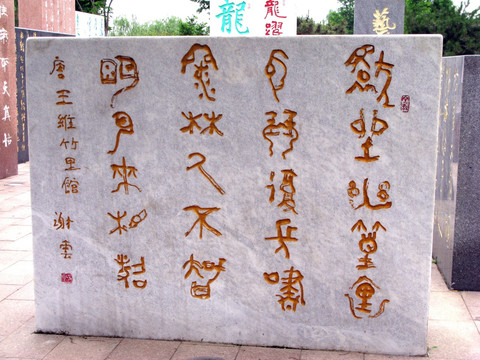 獨坐幽篁裏
彈琴復長嘯
深林人不智
明月來相照
唐王維竹里館
謝雲
龍
龍躍
藝